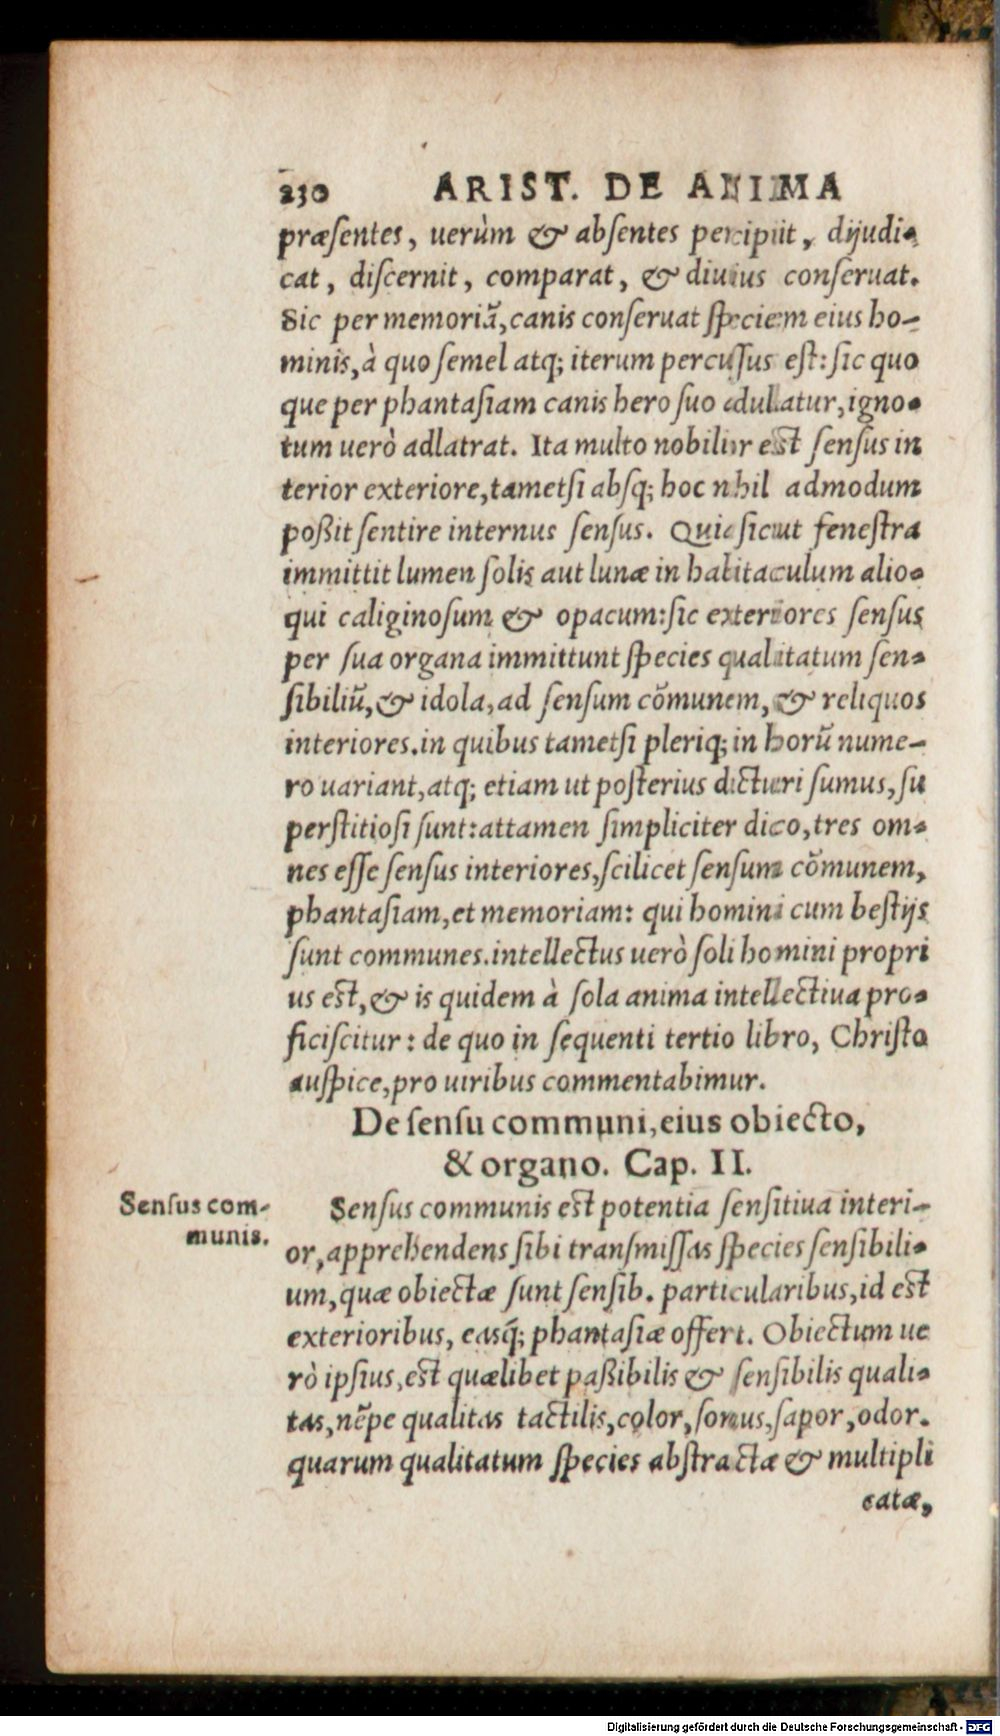 230 ARIST. DE ANIMA
præſentes, uerùm & abſentes percipit, dijudi-
cat, diſcernit, comparat, & diutius conſeruat.
Sic per memoriā, canis conſeruat ſpeciem eius ho-
minis, à quo ſemel atq; iterum percuſſus eſt: ſic quo
que per phantaſiam canis hero ſuo adulatur, igno-
tum uerò adlatrat. Ita multo nobilior eſt ſenſus in
terior exteriore, tametſi abſq; hoc nihil admodum
poßit ſentire internus ſenſus. Quia ſicut feneſtra
immittit lumen ſolis aut lunæ in habitaculum alio-
qui caliginoſum & opacum: ſic exteriores ſenſus
per ſua organa immittunt ſpecies qualitatum ſen-
ſibiliū, & idola, ad ſenſum cōmunem, & reliquos
interiores. in quibus tametſi pleriq; in horū nume-
ro uariant, atq; etiam ut poſterius dicturi ſumus, ſu
perſtitioſi ſunt: attamen ſimpliciter dico, tres om-
nes eſſe ſenſus interiores, ſcilicet ſenſum cōmunem,
phantaſiam, et memoriam: qui homini cum beſtijs
ſunt communes. intellectus uerò ſoli homini propri
us eſt, & is quidem à ſola anima intellectiua pro-
ficiſcitur: de quo in ſequenti tertio libro, Chriſto
auſpice, pro uiribus commentabimur.
De ſenſu communi, eius obiecto,
& organo. Cap. II.
Senſus com-
munis.
Senſus communis eſt potentia ſenſitiua interi-
or, apprehendens ſibi tranſmiſſas ſpecies ſenſibili-
um, quæ obiectæ ſunt ſenſib. particularibus, id eſt
exterioribus, easq́; phantaſiæ offert. Obiectum ue
rò ipſius, eſt quælibet paßibilis & ſenſibilis quali-
tas, nēpe qualitas tactilis, color, ſonus, ſapor, odor.
quarum qualitatum ſpecies abſtractæ & multipli
catæ,
Digitalisierung gefördert durch die Deutsche Forschungsgemeinschaft - DFG